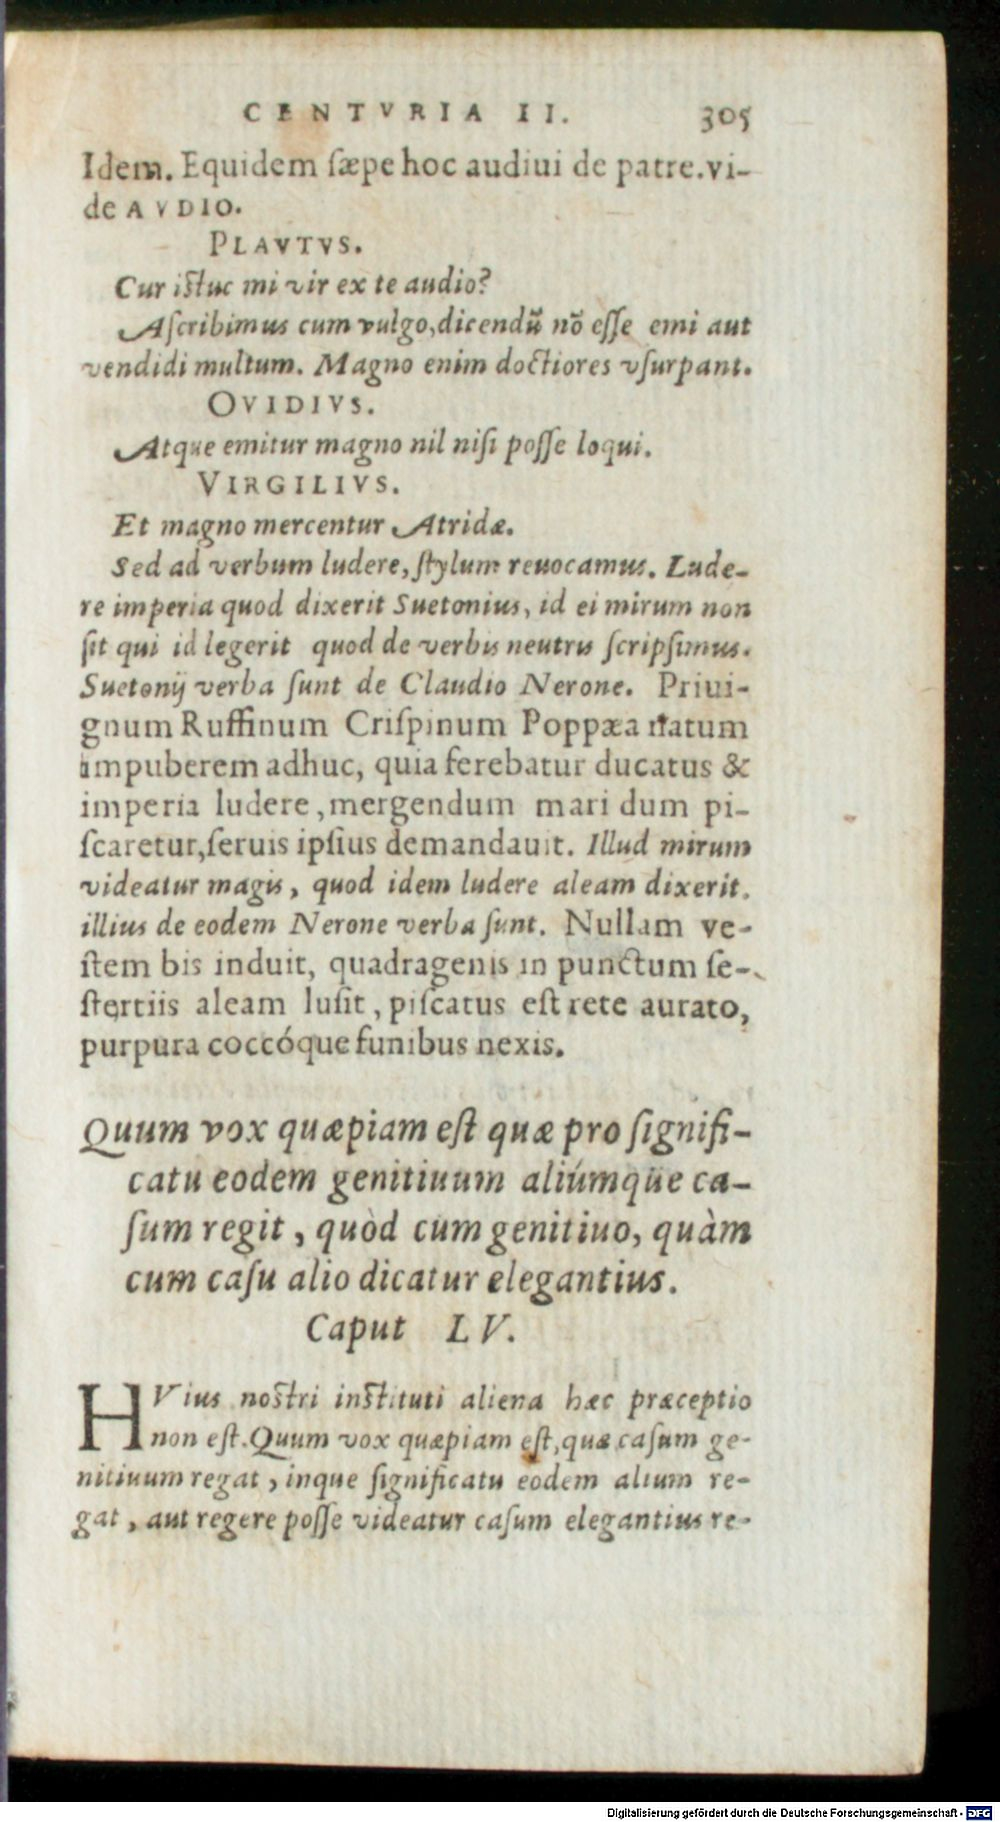 CENTVRIA II. 305
Idem. Equidem ſæpe hoc audiui de patre. vi-
de AVDIO.
PLAVTVS.
Cur iſtuc mi vir ex te audio?
Aſcribimus cum vulgo, dicendũ nõ eſſe emi aut
vendidi multum. Magno enim doctiores vſurpant.
OVIDIVS.
Atque emitur magno nil niſi poſſe loqui.
VIRGILIVS.
Et magno mercentur Atridæ.
Sed ad verbum ludere, ſtylum reuocamus. Lude-
re imperia quod dixerit Suetonius, id ei mirum non
ſit qui id legerit quod de verbis neutris ſcripſimus.
Suetonij verba ſunt de Claudio Nerone. Priui-
gnum Ruffinum Criſpinum Poppæa natum
impuberem adhuc, quia ferebatur ducatus &
imperia ludere, mergendum mari dum pi-
ſcaretur, ſeruis ipſius demandauit. Illud mirum
videatur magis, quod idem ludere aleam dixerit.
illius de eodem Nerone verba ſunt. Nullam ve-
ſtem bis induit, quadragenis in punctum ſe-
ſtertiis aleam luſit, piſcatus eſt rete aurato,
purpura coccóque funibus nexis.
Quum vox quæpiam eſt quæ pro ſignifi-
catu eodem genitiuum aliúmque ca-
ſum regit, quòd cum genitiuo, quàm
cum caſu alio dicatur elegantius.
Caput LV.
HVius noſtri inſtituti aliena hæc præceptio
non eſt. Quum vox quæpiam eſt, quæ caſum ge-
nitiuum regat, inque ſignificatu eodem alium re-
gat, aut regere poſſe videatur caſum elegantius re-
Digitalisierung gefördert durch die Deutsche Forschungsgemeinschaft - DFG